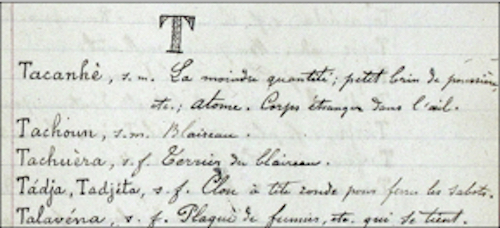 T
Tacanhè, s.m. La moindre quantité; petit brin de poussière,
etc.; atome. Corps étranger dans l'œil.
Tachoun, s.m. Blaireau.
Tachuèra, s.f. Terrier du blaireau.
Tádja, Tadjéta, s.f. Clou à tête ronde pour ferrer les sabots.
Talavéna, s.f. Plaque de fumier, etc. qui se tient.